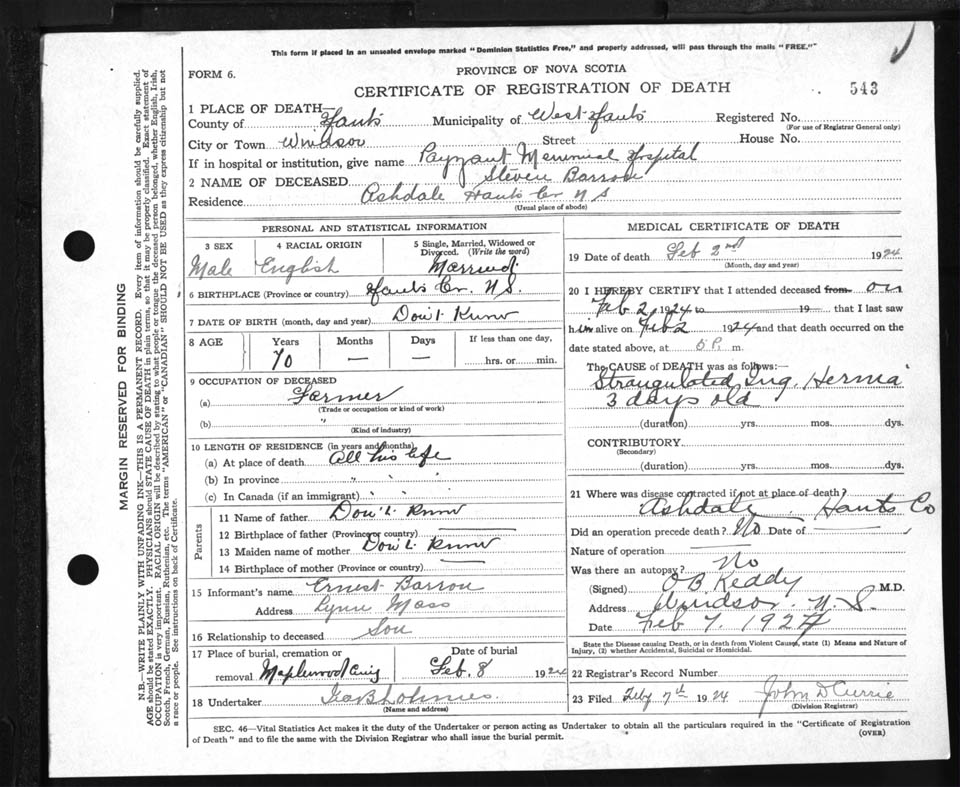 This form if placed in an unsealed envelope marked "Dominion Statistics Free," and properly addressed, will pass through the mails "FREE."
FORM 6.
PROVINCE OF NOVA SCOTIA
CERTIFICATE OF REGISTRATION OF DEATH
543
1 PLACE OF DEATH—
County of Hants Municipality of West Hants Registered No.
(For use of Registrar General only)
City or Town Windsor Street House No.
If in hospital or institution, give name Payzant Memorial Hospital
2 NAME OF DECEASED Steven Barron
Residence Ashdale Hants Co N S
(Usual place of abode)
PERSONAL AND STATISTICAL INFORMATION
3 SEX 4 RACIAL ORIGIN 5 Single, Married, Widowed or Divorced. (Write the word)
Male English Married
6 BIRTHPLACE (Province or country) Hants Co. N.S.
7 DATE OF BIRTH (month, day and year) Don't Know
8 AGE Years Months Days If less than one day,
70 — — hrs. or min.
9 OCCUPATION OF DECEASED
(a) Farmer
(Trade or occupation or kind of work)
(b) "
(Kind of industry)
10 LENGTH OF RESIDENCE (in years and months)
(a) At place of death All his life
(b) In province " "
(c) In Canada (if an immigrant) " "
Parents
11 Name of father Don't Know
12 Birthplace of father (Province or country)
13 Maiden name of mother Don't Know
14 Birthplace of mother (Province or Country)
15 Informant's name Ernest Barron
Address Lynn Mass
16 Relationship to deceased Son
17 Place of burial, cremation or removal Maplewood Date of burial Feb. 8 1924
18 Undertaker
(Name and address)
MEDICAL CERTIFICATE OF DEATH
19 Date of death Feb 2nd 1924
(Month, day and year)
20 I HEREBY CERTIFY that I attended deceased from on
Feb 2, 1924 to 19 that I last saw
him alive on Feb 2 1924 and that death occurred on
date stated above, at 5 P. m.
The CAUSE of DEATH was as follows:—
Strangulated Ing. Hernia
3 days old
(duration) yrs. mos. dys.
CONTRIBUTORY
(Secondary)
(duration) yrs. mos. dys.
21 Where was disease contracted if not at place of death?
Ashdale. Hants Co
Did an operation precede death? No Date of
Nature of operation
Was there an autopsy? No
(Signed) O B Keddy M.D.
Address Windsor. N.S.
Date Feb 7. 1924
State the Disease causing Death, or in death from Violent Causes, state (1) Means and Nature of Injury, (2) whether Accidental, Suicidal or Homicidal.
22 Registrar's Record Number
23 Filed Feby 7th 1924 John D Currie
(Division Registrar)
SEC. 46—Vital Statistics Act makes it the duty of the Undertaker or person acting as Undertaker to obtain all the particulars required in the "Certificate of Registration
of Death" and to file the same with the Division Registrar who shall issue the burial permit.
(OVER)
MARGIN RESERVED FOR BINDING
N.B.—WRITE PLAINLY WITH UNFADING INK—THIS IS A PERMANENT RECORD. Every item of information should be carefully supplied.
AGE should be stated EXACTLY. PHYSICIANS should STATE CAUSE OF DEATH in plain terms, so that it may be properly classified. Exact statement of
OCCUPATION is very important. RACIAL ORIGIN will be described by stating to what people or tongue the deceased person belonged, whether English, Irish,
Scotch, French, German, Russian, Ruthenian, etc. The terms "AMERICAN" or "CANADIAN" SHOULD NOT BE USED as they express citizenship but not
a race or people. See instructions on back of Certificate.